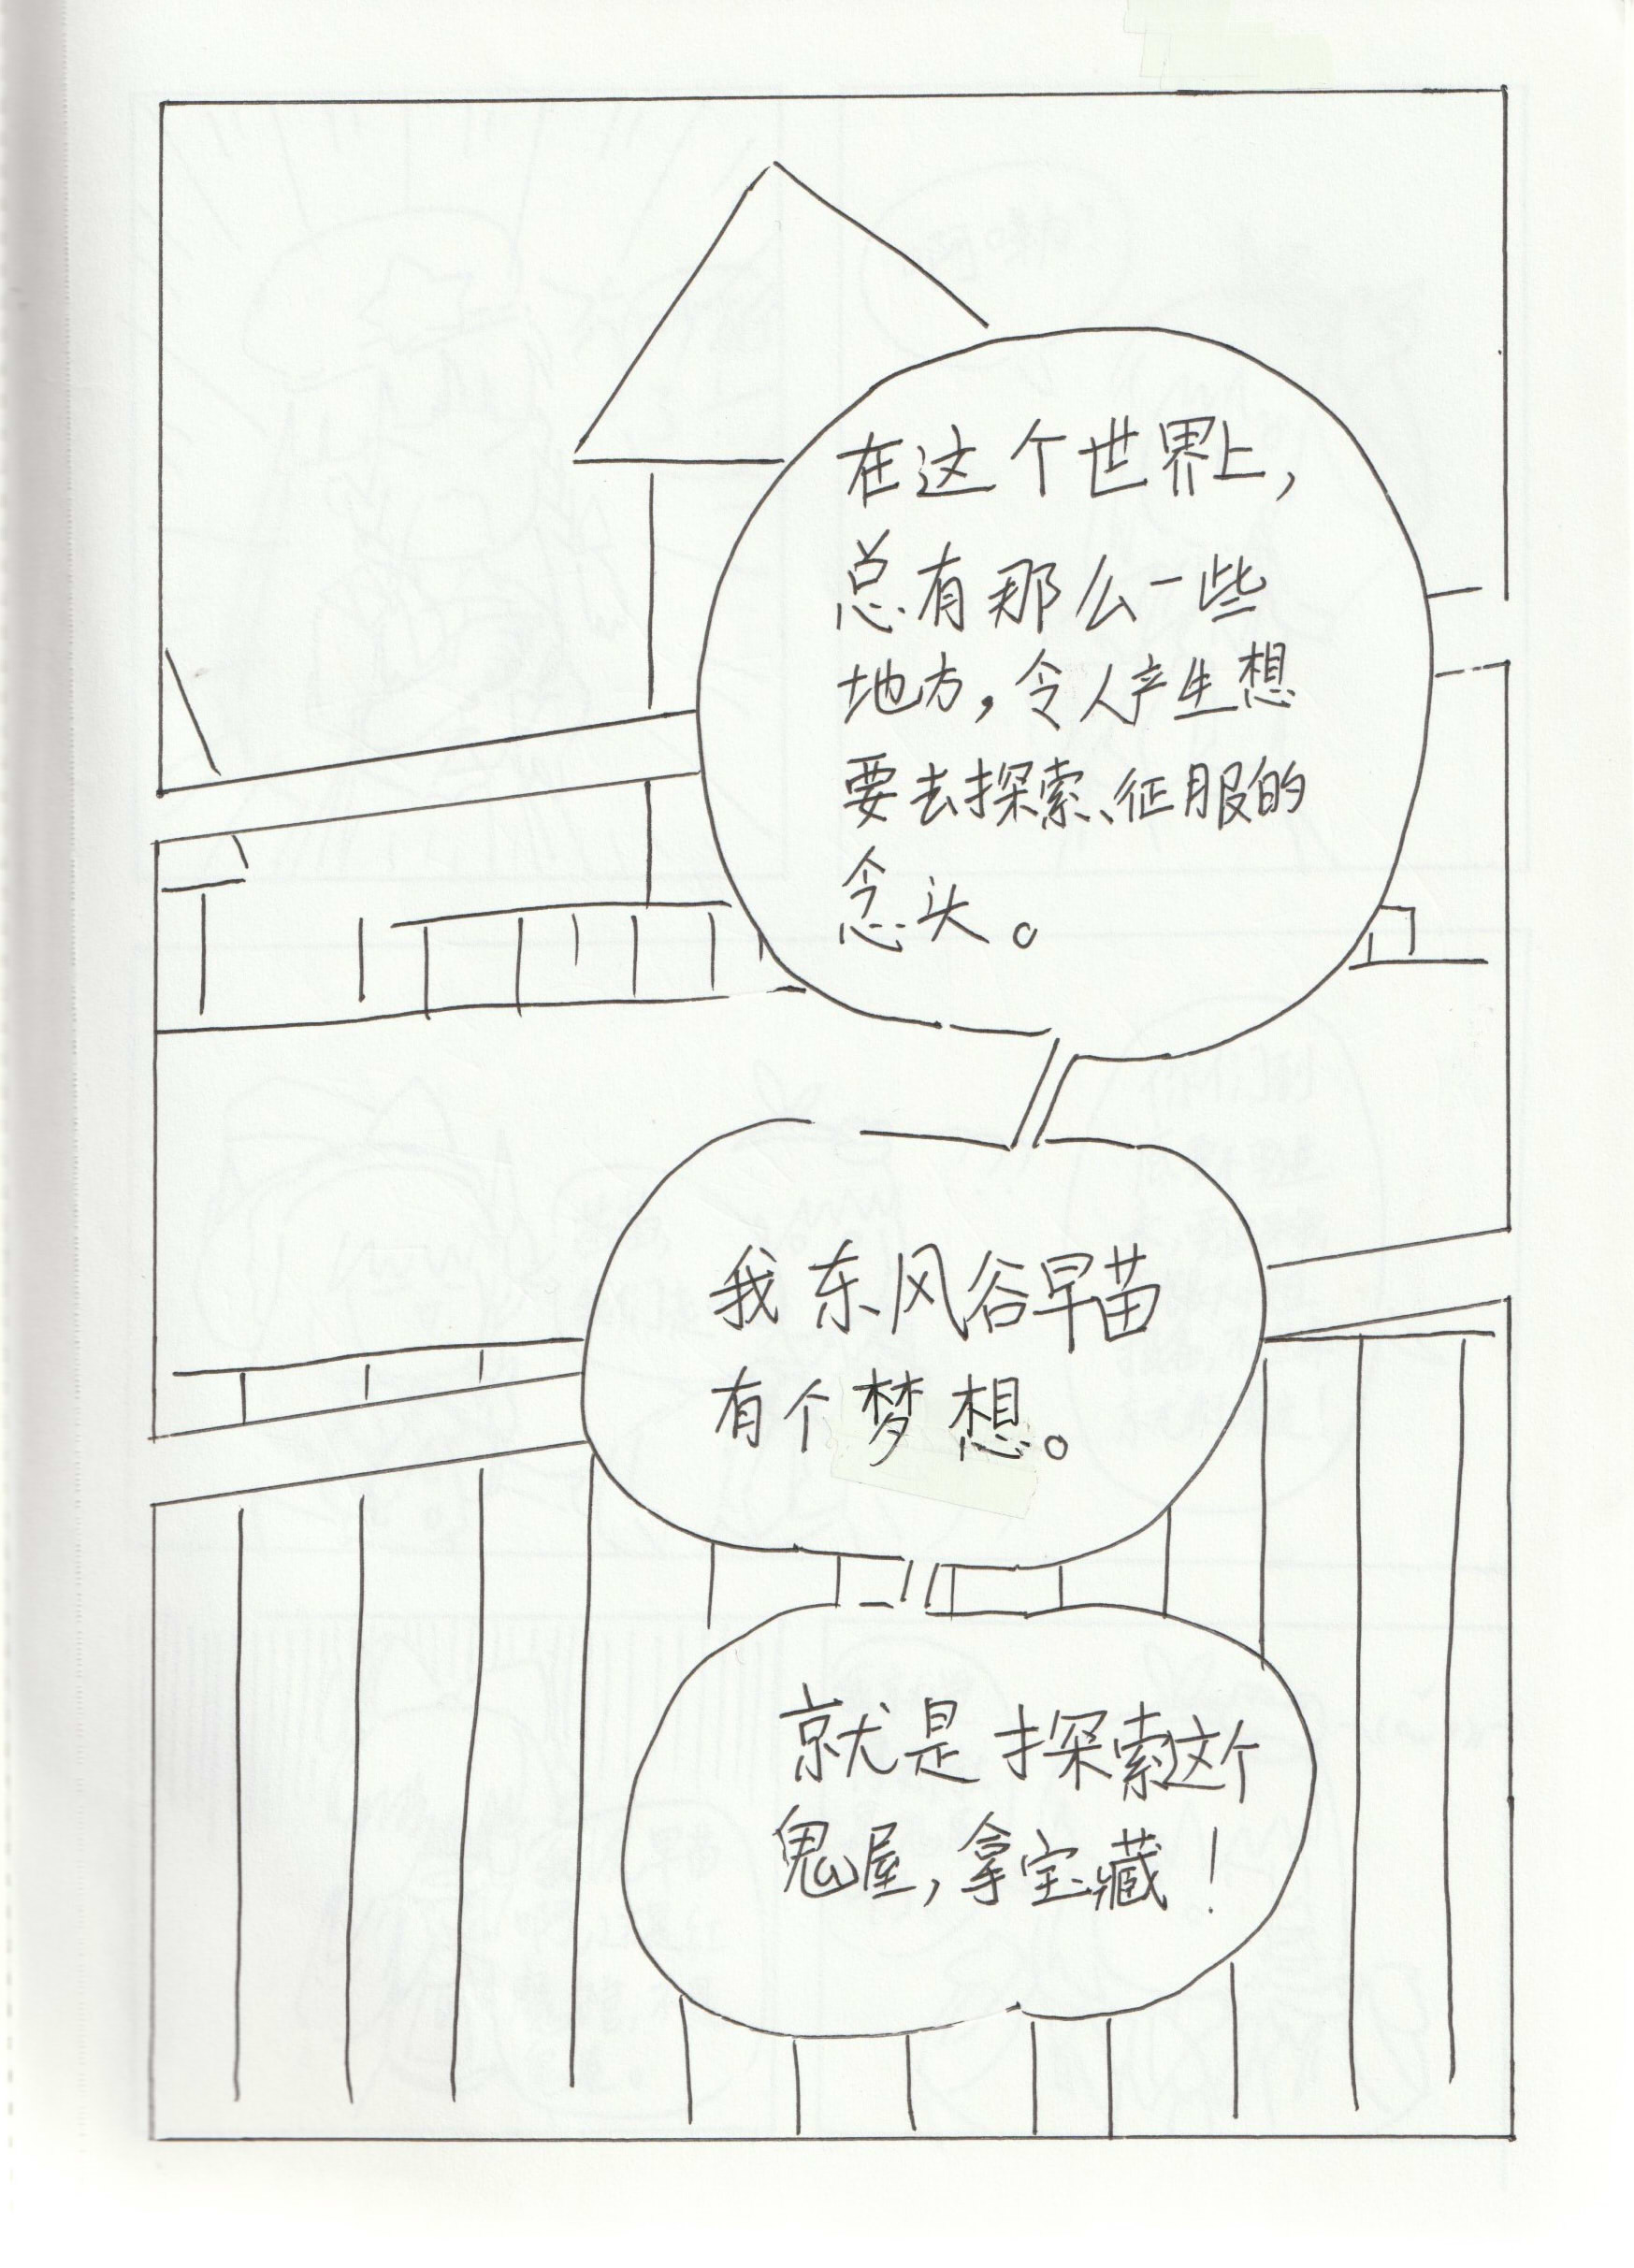 在这个世界上，
总有那么一些
地方，令人产生想
要去探索、征服的
念头。
我东风谷早苗
有个梦想。
就是探索这个
鬼屋，拿宝藏！